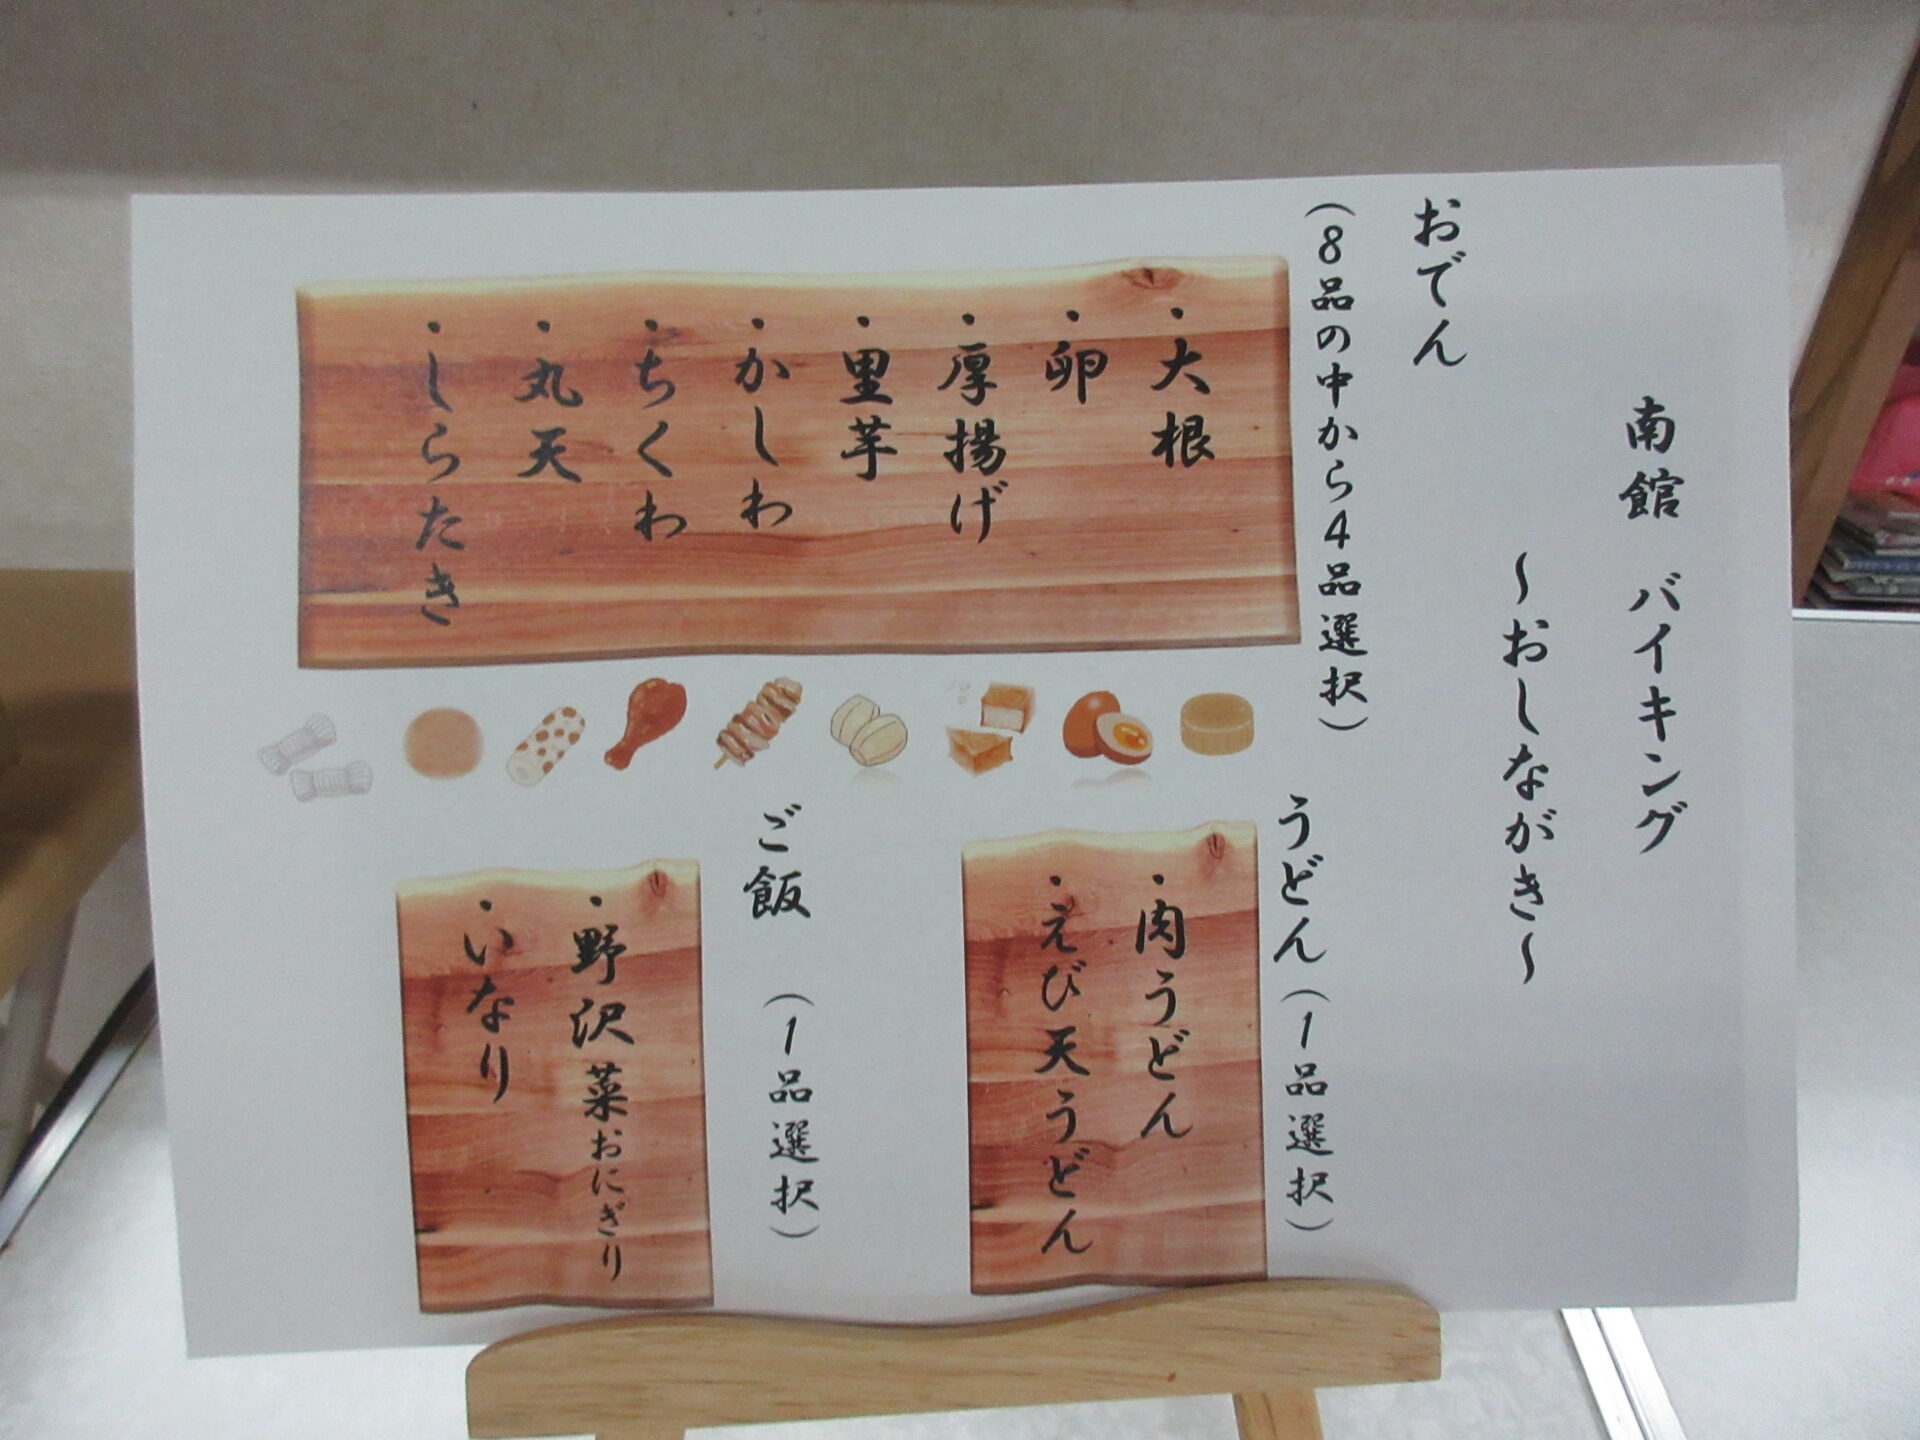 南館 バイキング
~おしながき~
おでん
(8品の中から4品選択)
・大根
・卵
・厚揚げ
・里芋
・かしわ
・ちくわ
・丸天
・しらたき
うどん(1品選択)
・肉うどん
・えび天うどん
ご飯 (1品選択)
・野沢菜おにぎり
・いなり